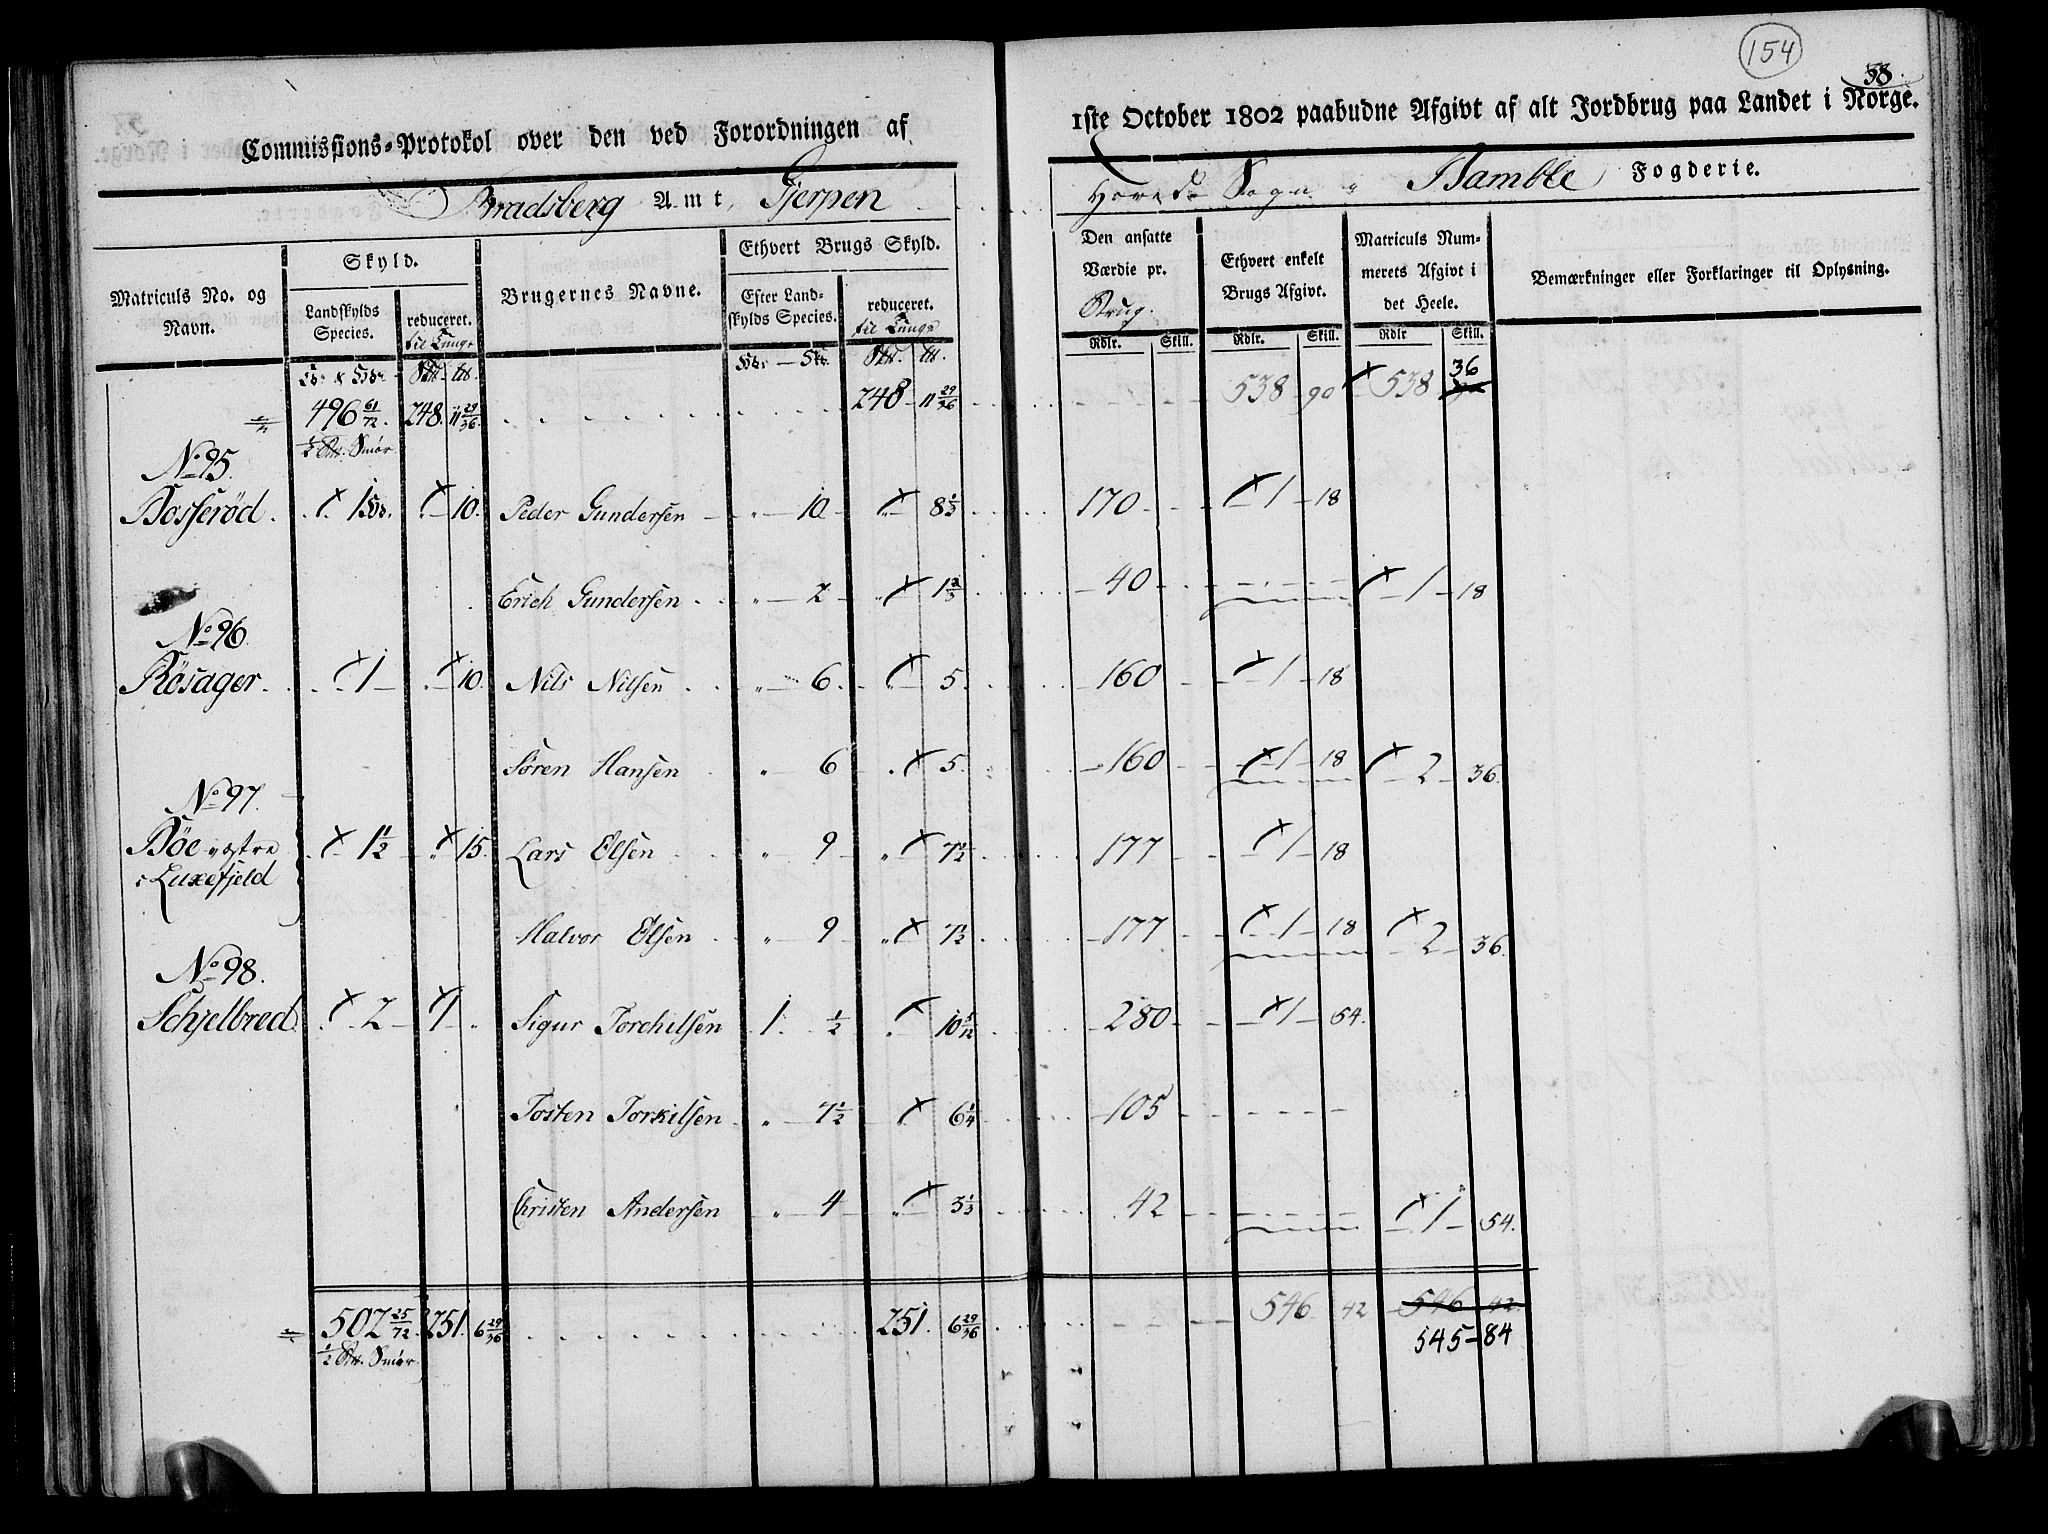 154
58.
Commissions-Protokol over den ved Forordningen af
1ste October 1802 paabudne Afgivt af alt Jordbrug paa Landet i Norge.
Bradsberg Amt, Gjerpen
Hoved Sogn Bamble Fogderie.
Matriculs No. og Navn.
Skyld.
Landskylds Species.
reduceret.
til Tunge
Brugernes Navne.
Ethvert Brugs Skyld.
Efter Landskylds Species.
reduceret.
til Tunge
Den ansatte Værdie pr. Brug.
Rdlr. Skill.
Ethvert enkelt Brugs Afgivt.
Rdlr. Skill.
Matriculs Nummerets Afgivt i det Heele.
Rdlr Skill.
Bemærkninger eller Forklaringer til Oplysning.
496 61/72. 248. 11 29/36. 248 - 11 29/36 538 - 90 538 36
1/2 Smör
No 95.
Bosserød. 1 10. Peder Gundersen " - 10 8 1/3 170 1 - 18
Erich Gundersen " - 2 1 2/3 40 1 - 18
No 96.
Røsager. 1 10. Nils Nilsen " - 6 5. 160 1 - 18
Sören Hansen " - 6 5. 160 1 - 18 2 - 36.
No 97.
Böe vestre 1 1/2 15. Lars Elsen " - 9 7 1/2 177 1 - 18
i Luxefjeld
Halvor Elsen " - 9 7 1/2 177 1 - 18 2 - 36.
No 98.
Schjelbred 2 1 Sigur Torchilsen 1. 1/2 10 5/12 280 1 - 54.
Tosten Torkilsen " 7 1/2 6 1/4 105
Christen Andersen " 4 3 1/3 42 1 - 54.
502 25/72. 251. 6 29/36 251. 6 29/36 546 42 546 42
1/2 Smör. 545 - 84